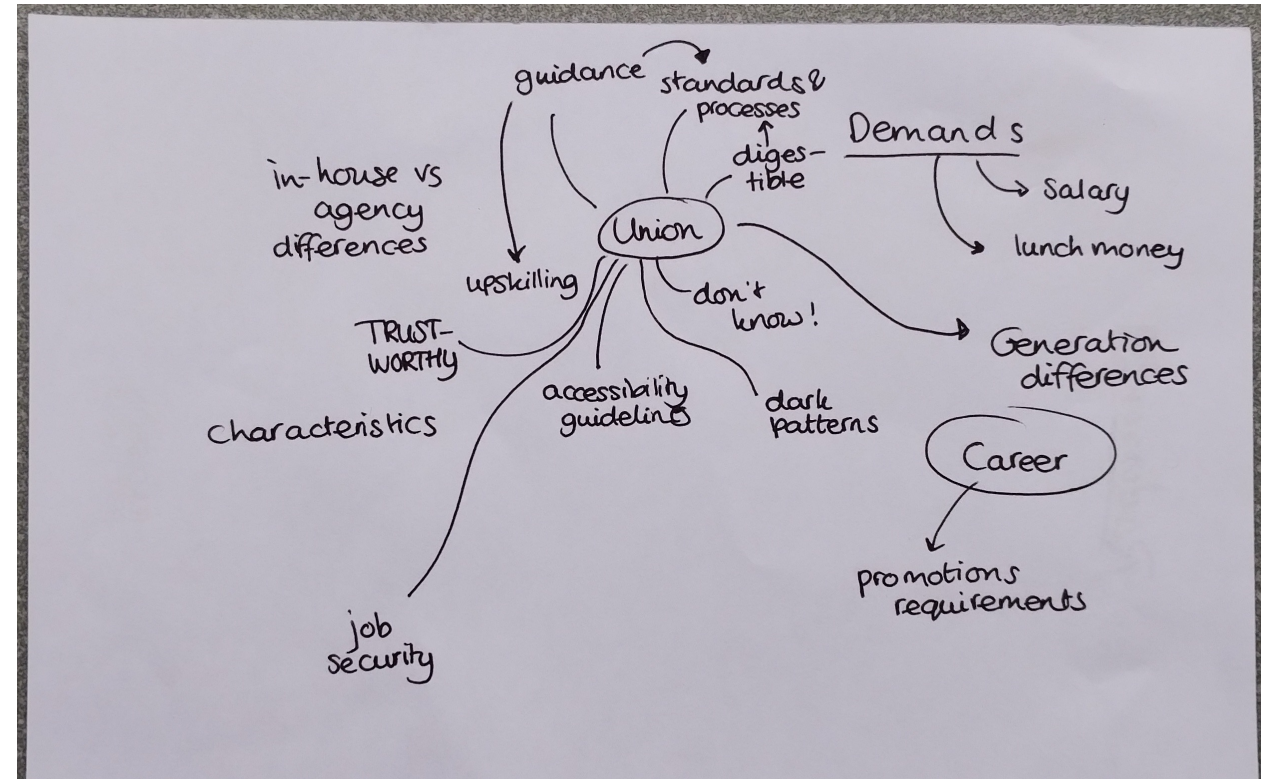 guidance
standards &
processes
diges-
tible
Demands
Salary
lunch money
in-house vs
agency
differences
Union
upskilling
don't
know!
TRUST-
WORTHY
Generation
differences
accessibility
guidelines
dark
patterns
characteristics
Career
promotions
requirements
job
security